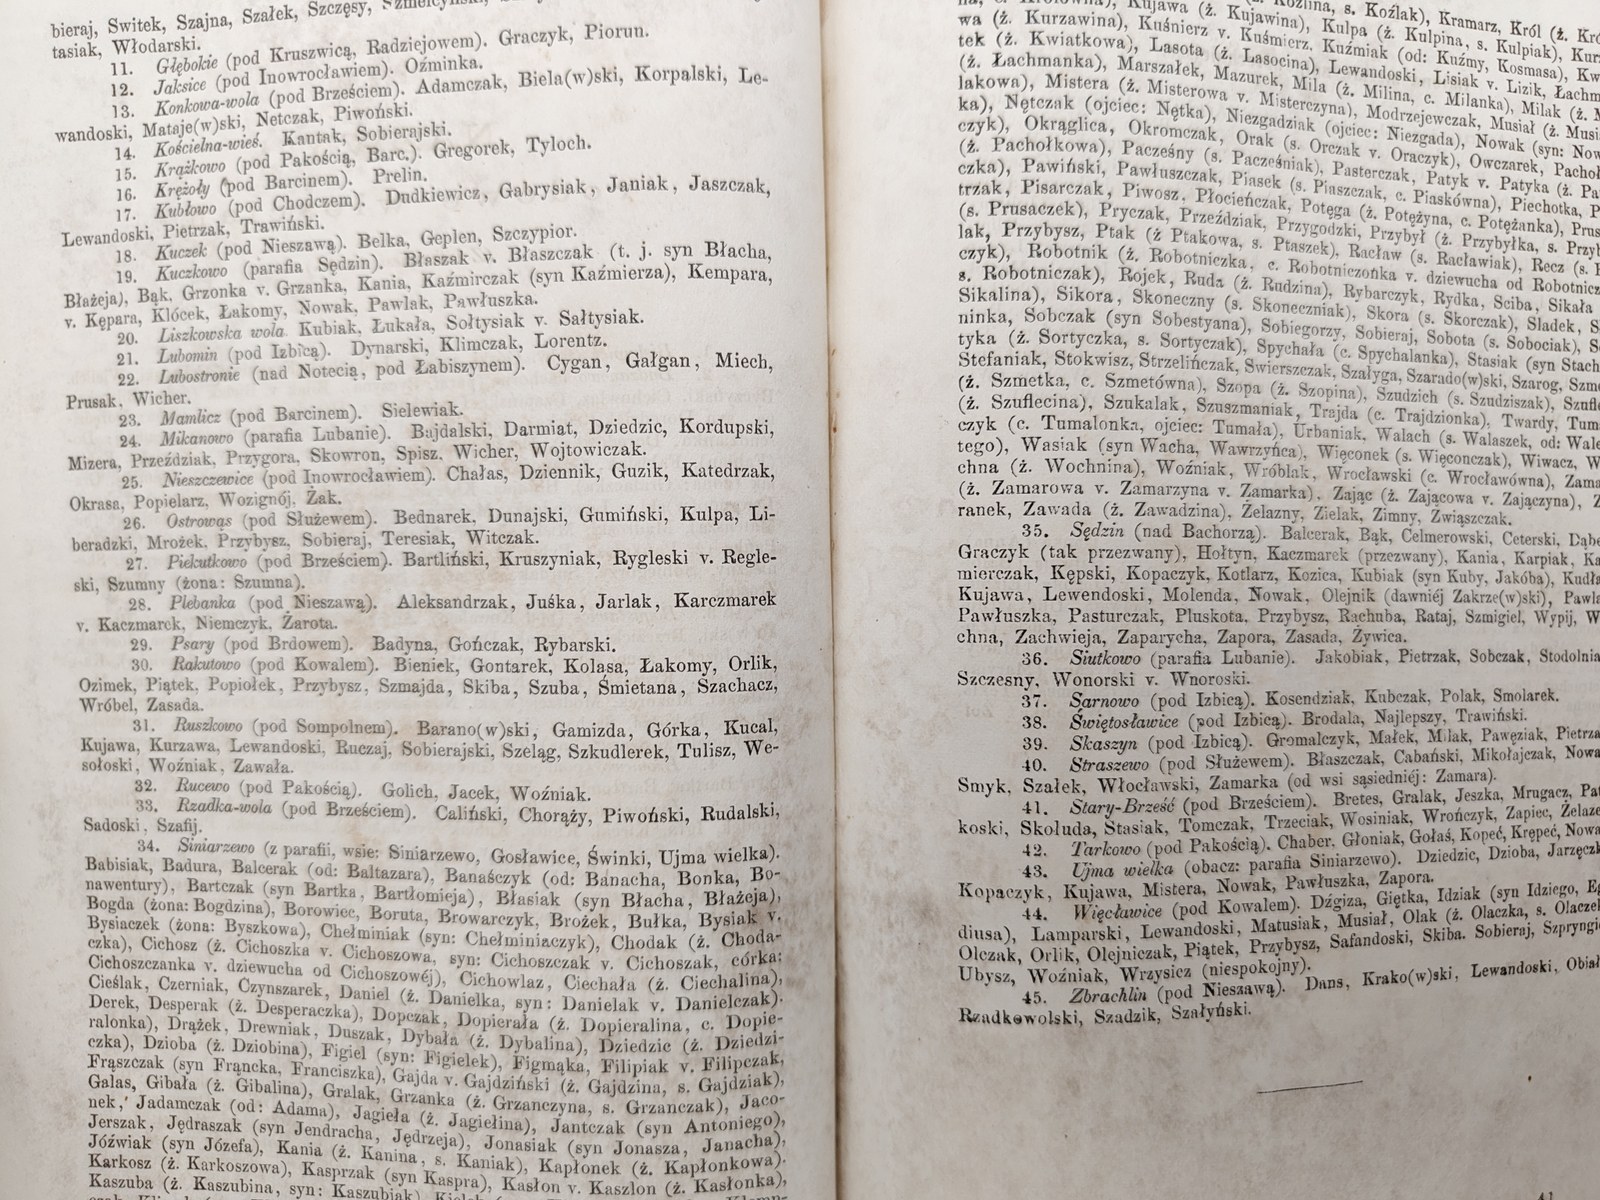 bieraj, Switek, Szajna, Szałek, Szczęsy,
tasiak, Włodarski.
11. Głębokie (pod Kruszwicą, Radziejowem). Graczyk, Piorun.
12. Jaksice (pod Inowrocławiem). Oźminka.
13. Konkowa-wola (pod Brześciem). Adamczak, Biela(w)ski, Korpalski, Le-
wandoski, Mataje(w)ski, Netczak, Piwoński.
14. Kościelna-wieś. Kantak, Sobierajski.
15. Krążkowo (pod Pakością, Barc.). Gregorek, Tyloch.
16. Krężoły (pod Barcinem). Prelin.
17. Kubłowo (pod Chodczem). Dudkiewicz, Gabrysiak, Janiak, Jaszczak,
Lewandoski, Pietrzak, Trawiński.
18. Kuczek (pod Nieszawą). Belka, Geplen, Szczypior.
19. Kuczkowo (parafia Sędzin). Błaszak v. Błaszczak (t. j. syn Błacha,
Błażeja), Bąk, Grzonka v. Grzanka, Kania, Kaźmirczak (syn Kaźmierza), Kempara,
v. Kępara, Klócek, Łakomy, Nowak, Pawlak, Pawłuszka.
20. Liszkowska wola. Kubiak, Łukała, Sołtysiak v. Sałtysiak.
21. Lubomin (pod Izbicą). Dynarski, Klimczak, Lorentz.
22. Lubostronie (nad Notecią, pod Łabiszynem). Cygan, Gałgan, Miech,
Prusak, Wicher.
23. Mamlicz (pod Barcinem). Sielewiak.
24. Mikanowo (parafia Lubanie). Bajdalski, Darmiat, Dziedzic, Kordupski,
Mizera, Przeździak, Przygora, Skowron, Spisz, Wicher, Wojtowiczak.
25. Nieszczewice (pod Inowrocławiem). Chałas, Dziennik, Guzik, Katedrzak,
Okrasa, Popielarz, Wozignój, Żak.
26. Ostrowąs (pod Służewem). Bednarek, Dunajski, Gumiński, Kulpa, Li-
beradzki, Mrożek, Przybysz, Sobieraj, Teresiak, Witczak.
27. Piekutkowo (pod Brześciem). Bartliński, Kruszyniak, Rygleski v. Regle-
ski, Szumny (żona: Szumna).
28. Plebanka (pod Nieszawą). Aleksandrzak, Juśka, Jarlak, Karczmarek
v. Kaczmarek, Niemczyk, Żarota.
29. Psary (pod Brdowem). Badyna, Gończak, Rybarski.
30. Rakutowo (pod Kowalem). Bieniek, Gontarek, Kolasa, Łakomy, Orlik,
Ozimek, Piątek, Popiołek, Przybysz, Szmajda, Skiba, Szuba, Śmietana, Szachacz,
Wróbel, Zasada.
31. Ruszkowo (pod Sompolnem). Barano(w)ski, Gamizda, Górka, Kucal,
Kujawa, Kurzawa, Lewandoski, Ruczaj, Sobierajski, Szeląg, Szkudlerek, Tulisz, We-
sołoski, Woźniak, Zawała.
32. Rucewo (pod Pakością). Golich, Jacek, Woźniak.
33. Rzadka-wola (pod Brześciem). Caliński, Chorąży, Piwoński, Rudalski,
Sadoski, Szafij.
34. Siniarzewo (z parafii, wsie: Siniarzewo, Gosławice, Świnki, Ujma wielka).
Babisiak, Badura, Balcerak (od: Baltazara), Banaśczyk (od: Banacha, Bonka, Bo-
nawentury), Bartczak (syn Bartka, Bartłomieja), Błasiak (syn Błacha, Błażeja),
Bogda (żona: Bogdzina), Borowiec, Boruta, Browarczyk, Brożek, Bułka, Bysiak v.
Bysiaczek (żona: Byszkowa), Chełminiak (syn: Chełminiaczyk), Chodak (ż. Choda-
czka), Cichosz (ż. Cichoszka v. Cichoszowa, syn: Cichoszczak v. Cichoszak, córka:
Cichoszczanka v. dziewucha od Cichoszowéj), Cichowlaz, Ciechała (ż. Ciechalina),
Cieślak, Czerniak, Czynszarek, Daniel (ż. Danielka, syn: Danielak v. Danielczak).
Derek, Desperak (ż. Desperaczka), Dopczak, Dopierała (ż. Dopieralina, c. Dopie-
ralonka), Drążek, Drewniak, Duszak, Dybała (ż. Dybalina), Dziedzic (ż. Dziedzi-
czka), Dzioba (ż. Dziobina), Figiel (syn: Figielek), Figmąka, Filipiak v. Filipczak,
Frąszczak (syn Frąncka, Franciszka), Gajda v. Gajdziński (ż. Gajdzina, s. Gajdziak),
Galas, Gibała (ż. Gibalina), Gralak, Grzanka (ż. Grzanczyna, s. Grzanczak), Jaco-
nek, Jadamczak (od: Adama), Jagieła (ż. Jagielina), Jantczak (syn Antoniego),
Jerszak, Jędraszak (syn Jendracha, Jędrzeja), Jonasiak (syn Jonasza, Janacha),
Jóźwiak (syn Józefa), Kania (ż. Kanina, s. Kaniak), Kapłonek (ż. Kapłonkowa).
Karkosz (ż. Karkoszowa), Kasprzak (syn Kaspra), Kasłon v. Kaszlon (ż. Kasłonka),
Kaszuba (ż. Kaszubina, syn: Kaszubiak)
Koźlina, s. Koźlak), Kramarz, Król (ż.
Kujawa (ż. Kujawina), Kulpa (ż. Kulpina, s. Kulpiak),
wa (ż. Kurzawina), Kuśnierz v. Kuśmierz, Kuźmiak (od: Kuźmy, Kosmasa),
tek (ż. Kwiatkowa), Lasota (ż. Lasocina), Lewandoski, Lisiak v. Lizik,
(ż. Łachmanka), Marszałek, Mazurek, Mila (ż. Milina, c. Milanka), Milak (ż.
lakowa), Mistera (ż. Misterowa v. Misterczyna), Modrzejewczak, Musiał (ż.
ka), Nętczak (ojciec: Nętka), Niezgadziak (ojciec: Niezgada), Nowak (syn:
czyk), Okrąglica, Okromczak, Orak (s. Orczak v. Oraczyk), Owczarek,
(ż. Pachołkowa), Pacześny (s. Pacześniak), Pasterczak, Patyk v. Patyka (ż.
czka), Pawiński, Pawłuszczak, Piasek (s. Piaszczak, c. Piaskówna), Piechotka,
trzak, Pisarczak, Piwosz, Płocieńczak, Potęga (ż. Potężyna, c. Potężanka),
(s. Prusaczek), Pryczak, Przeździak, Przygodzki, Przybył (ż. Przybyłka, s.
lak, Przybysz, Ptak (ż Ptakowa, s. Ptaszek), Racław (s. Racławiak), Recz (s.
czyk), Robotnik (ż. Robotniczka, c. Robotniczońka v. dziewucha od
s. Robotniczak), Rojek, Ruda (ż. Rudzina), Rybarczyk, Rydka, Sciba, Sikała
Sikalina), Sikora, Skoneczny (s. Skoneczniak), Skora (s. Skorczak), Sladek,
ninka, Sobczak (syn Sobestyana), Sobiegorzy, Sobieraj, Sobota (s. Sobociak),
tyka (ż. Sortyczka, s. Sortyczak), Spychała (c. Spychalanka), Stasiak (syn
Stefaniak, Stokwisz, Strzelińczak, Swierszczak, Szałyga, Szarado(w)ski, Szarog,
(ż. Szmetka, c. Szmetówna), Szopa (ż. Szopina), Szudzich (s. Szudziszak),
(ż. Szuflecina), Szukalak, Szuszmaniak, Trajda (c. Trajdzionka), Twardy,
czyk (c. Tumalonka, ojciec: Tumała), Urbaniak, Walach (s. Walaszek, od:
tego), Wasiak (syn Wacha, Wawrzyńca), Więconek (s. Więconczak), Wiwacz,
chna (ż. Wochnina), Woźniak, Wróblak, Wrocławski (c. Wrocławówna),
(ż. Zamarowa v. Zamarzyna v. Zamarka), Zając (ż. Zającowa v. Zajączyna),
ranek, Zawada (ż. Zawadzina), Żelazny, Zielak, Zimny, Związczak.
35. Sędzin (nad Bachorzą). Balcerak, Bąk, Celmerowski, Ceterski,
Graczyk (tak przezwany), Hołtyn, Kaczmarek (przezwany), Kania, Karpiak,
mierczak, Kępski, Kopaczyk, Kotlarz, Kozica, Kubiak (syn Kuby, Jakóba),
Kujawa, Lewendoski, Molenda, Nowak, Olejnik (dawniéj Zakrze(w)ski),
Pawłuszka, Pasturczak, Pluskota, Przybysz, Rachuba, Rataj, Szmigiel, Wypij,
chna, Zachwieja, Zaparycha, Zapora, Zasada, Żywica.
36. Siutkowo (parafia Lubanie). Jakobiak, Pietrzak, Sobczak,
Szczesny, Wonorski v. Wnoroski.
37. Sarnowo (pod Izbicą). Kosendziak, Kubczak, Polak, Smolarek.
38. Świętosławice (pod Izbicą). Brodala, Najlepszy, Trawiński.
39. Skaszyn (pod Izbicą). Gromalczyk, Małek, Milak, Pawęziak,
40. Straszewo (pod Służewem). Błaszczak, Cabański, Mikołajczak,
Smyk, Szałek, Włocławski, Zamarka (od wsi sąsiedniéj: Zamara).
41. Stary-Brześć (pod Brześciem). Bretes, Gralak, Jeszka, Mrugacz,
koski, Skoluda, Stasiak, Tomczak, Trzeciak, Wosiniak, Wrończyk, Zapiec,
42. Tarkowo (pod Pakością). Chaber, Głoniak, Gołaś, Kopeć, Krępeć,
43. Ujma wielka (obacz: parafia Siniarzewo). Dziedzic, Dzioba,
Kopaczyk, Kujawa, Mistera, Nowak, Pawłuszka, Zapora.
44. Więcławice (pod Kowalem). Dźgiza, Giętka, Idziak (syn Idziego,
diusa), Lamparski, Lewandoski, Matusiak, Musiał, Olak (ż. Olaczka, s.
Olczak, Orlik, Olejniczak, Piątek, Przybysz, Safandoski, Skiba, Sobieraj,
Ubysz, Woźniak, Wrzysicz (niespokojny).
45. Zbrachlin (pod Nieszawą). Dans, Krako(w)ski, Lewandoski,
Rzadkowolski, Szadzik, Szałyński.